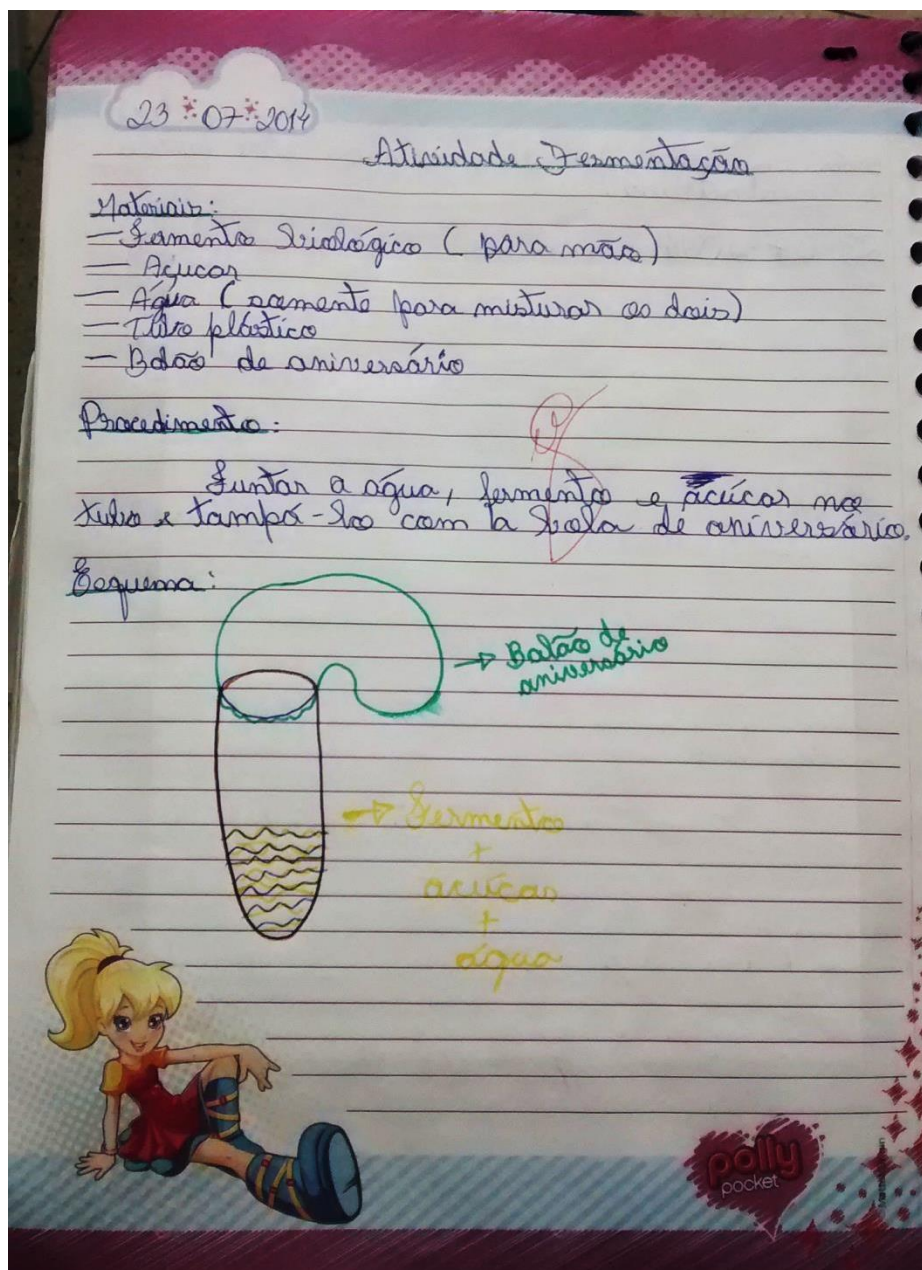 23 07 2014
Atividade Fermentação
Materiais:
— Fermento Biológico (para mão)
— Açucar
— Água (somente para misturar os dois)
— Tubo plástico
— Balão de aniversário
Procedimento:
Juntar a água, fermento e acúcar no
tubo e tampá-lo com a bola de aniversário.
Esquema:
→ Balão de
aniversário
→ Fermento
+
acúcar
+
água
polly
pocket